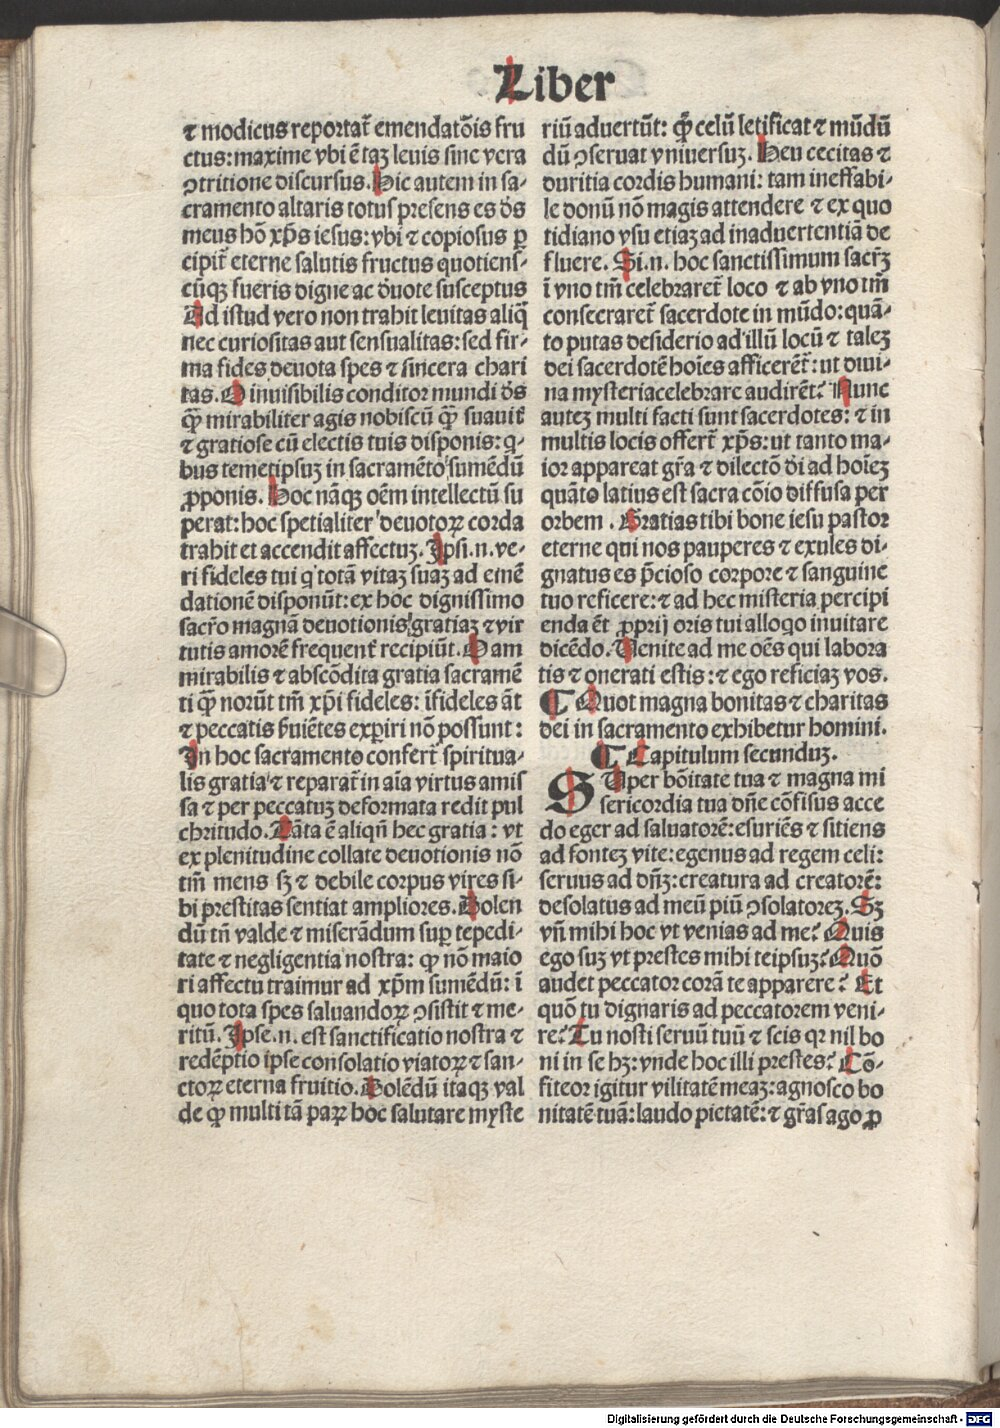 Liber
⁊ modicus reportat̃ emendatõis fru
ctus: maxime vbi ẽ taꝫ leuis sine vera
ꝯtritione discursus. Hic autem in sa-
cramento altaris totus presens es d̃s
meus hõ xp̃s iesus: vbi ⁊ copiosus ꝑ
cipit̃ eterne salutis fructus quotiens-
cũqꝫ fueris digne ac d̃uote susceptus
Ad istud vero non trahit leuitas aliq̃
nec curiositas aut sensualitas: sed fir-
ma fides deuota spes ⁊ sincera chari
tas. O inuisibilis conditor mundi d̃s
q̃ꝫ mirabiliter agis nobiscũ q̃ꝫ suauit̃
⁊ gratiose cũ electis tuis disponis: q-
bus temetipsuꝫ in sacramẽto sumẽdũ
ꝓponis. Hoc nãqꝫ oẽm intellectũ su
perat: hoc spetialiter deuotoꝝ corda
trahit et accendit affectuꝫ. Ipsi .n. ve-
ri fideles tui q totã vitaꝫ suaꝫ ad emẽ
dationẽ disponũt: ex hoc dignissimo
sacr̃o magnã deuotionis gratiaꝫ ⁊ vir
tutis amorẽ frequent̃ recipiũt. O am
mirabilis ⁊ abscõdita gratia sacramẽ
ti q̃ꝫ norũt tm̃ xp̃i fideles: ĩfideles ãt
⁊ peccatis ẜuiẽtes exꝑiri nõ possunt:
In hoc sacramento confert̃ spiritua-
lis gratia ⁊ reparat̃ in aĩa virtus amis
sa ⁊ per peccatuꝫ deformata redit pul
chritudo. Tãta ẽ aliqñ hec gratia: vt
ex plenitudine collate deuotionis nõ
tm̃ mens sꝫ ⁊ debile corpus vires si-
bi prestitas sentiat ampliores. Dolen
dũ tñ valde ⁊ miserãdum suꝑ tepedi-
tate ⁊ negligentia nostra: ꝙ nõ maio
ri affectu traimur ad xp̃m sumẽdũ: ĩ
quo tota spes saluandoꝝ ꝯsistit ⁊ me-
ritũ. Ipse .n. est sanctificatio nostra ⁊
redẽptio ipse consolatio viatoꝝ ⁊ san-
ctoꝝ eterna fruitio. Dolẽdũ itaqꝫ val
de ꝙ multi tã paꝝ hoc salutare myste
riũ aduertũt: q̃ꝫ celũ letificat ⁊ mũdũ
dũ ꝯseruat vniuersuꝫ. Heu cecitas ⁊
duritia cordis humani: tam ineffabi-
le donũ nõ magis attendere ⁊ ex quo
tidiano vsu etiaꝫ ad inaduertentiã de
fluere. Si .n. hoc sanctissimum sacr̃ꝫ
ĩ vno tm̃ celebraret̃ loco ⁊ ab vno tm̃
consecraret̃ sacerdote in mũdo: quã-
to putas desiderio ad illũ locũ ⁊ taleꝫ
dei sacerdotẽ hoĩes afficerẽt̃: ut diui-
na mysteria celebrare audirẽt? Nunc
auteꝫ multi facti sunt sacerdotes: ⁊ in
multis locis offert̃ xp̃s: ut tanto ma-
ior appareat gr̃a ⁊ dilectõ dĩ ad hoĩeꝫ
quãto latius est sacra cõio diffusa per
orbem. Gratias tibi bone iesu pastor
eterne qui nos pauperes ⁊ exules di-
gnatus es p̃cioso corpore ⁊ sanguine
tuo reficere: ⁊ ad hec misteria percipi
enda ẽt ꝓprij oris tui alloqo inuitare
dicẽdo. Venite ad me oẽs qui labora
tis ⁊ onerati estis: ⁊ ego reficiaꝫ vos.
¶ Quot magna bonitas ⁊ charitas
dei in sacramento exhibetur homini.
¶ Capitulum secunduꝫ.
SUper bõitate tua ⁊ magna mi
sericordia tua dñe cõfisus acce
do eger ad saluatorẽ: esuriẽs ⁊ sitiens
ad fonteꝫ vite: egenus ad regem celi:
seruus ad dñꝫ: creatura ad creatorẽ:
desolatus ad meũ piũ ꝯsolatoreꝫ. Sꝫ
vñ mihi hoc vt venias ad me? Quis
ego suꝫ vt prestes mihi teipsuꝫ? Quõ
audet peccator corã te apparere? Et
quõ tu dignaris ad peccatorem veni-
re? Tu nosti seruũ tuũ ⁊ scis qꝛ nil bo
ni in se hꝫ: vnde hoc illi prestes? Cõ-
fiteor igitur vilitatẽ meaꝫ: agnosco bo
nitatẽ tuã: laudo pietatẽ: ⁊ gr̃as ago ꝓ
Digitalisierung gefördert durch die Deutsche Forschungsgemeinschaft - DFG